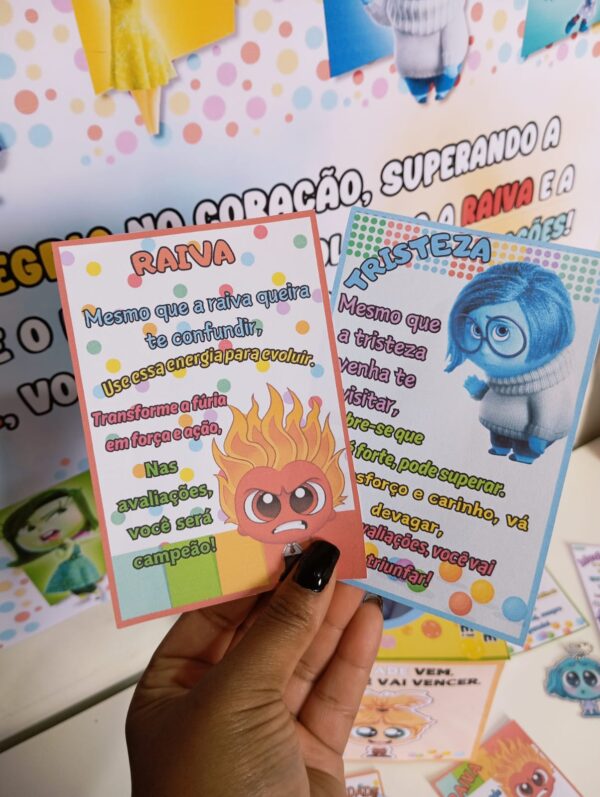 NO CORAÇÃO, SUPERANDO A
A RAIVA E A
E O
RAIVA
Mesmo que a raiva queira
te confundir,
Use essa energia para evoluir.
Transforme a fúria
em força e ação,
Nas
avaliações,
você será
campeão!
TRISTEZA
Mesmo que
a tristeza
venha te
visitar,
forte, pode superar.
e carinho, vá
devagar,
você vai
triunfar!
VEM,
VAI VENCER.